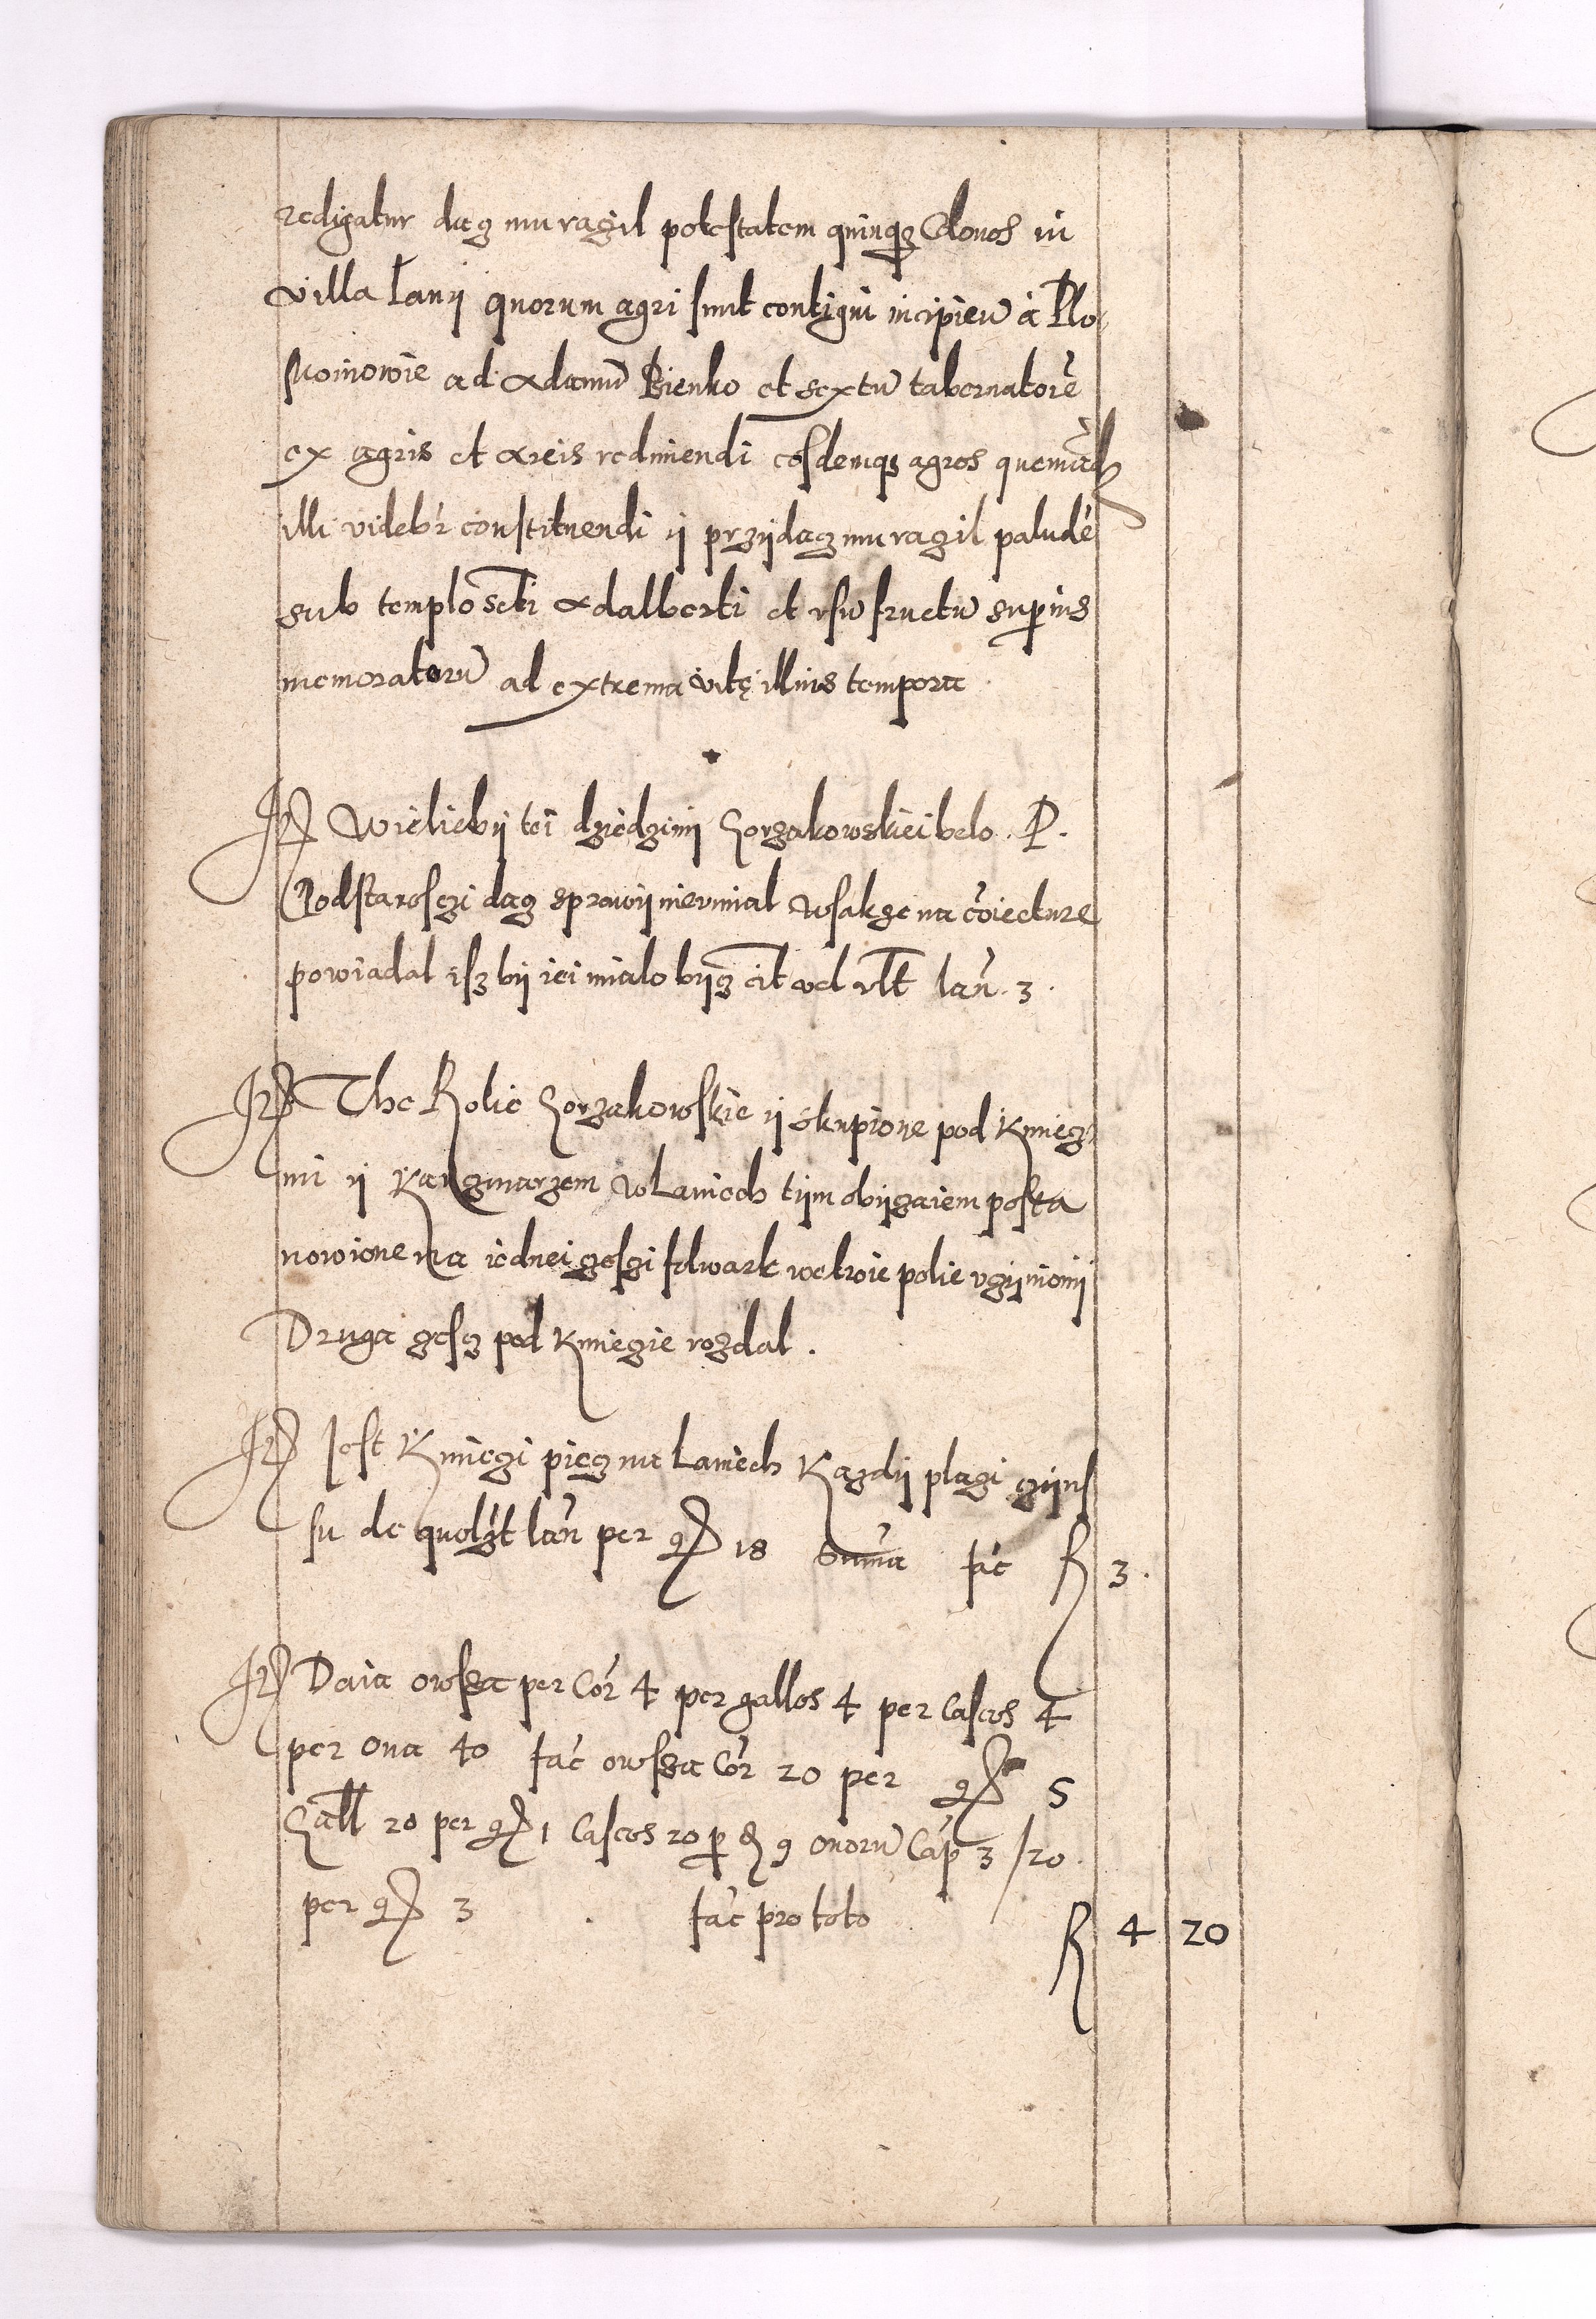 redigatur dacz mu raczil potestatem quinqz Colonos in
villa Lanÿ quorum agri sunt contigui incipien̄ à Plo
ad Adamū Bienko et sextū tabernatorē
ex agris et areis redimendi eosdemqz agros quemad
illi videbr̄ constituendi ÿ przÿdacz mu raczil paludē
sub templo Scti Adalberti et vsū fructū supius
memoratorū ad extrema vitę illius tempora
It Wieliebÿ tei dziedzinÿ Gorzakowskiei belo . P.
Podstarosczi dacz sprawÿ nievmial wsakze na cōiecture
powiadal isz bÿ iei mialo bÿcz cit vel vlt lan̄. 3.
It The Rolie Gorzakowskie ÿ skupione pod Kmiecz
mi ÿ Karczmarzem w Laniech tÿm obÿczaiem posta
nowione na iednei czesczi folwark wetroie polie vczÿnionÿ
Druga czescz pod Kmiecie rozdal.
It Jest Kmieczi piecz na Laniech Kazdÿ placzi czÿns
su de quolzt lan̄ per gr 18 Suma fac R 3.
It Daia owssa per Cor 4 per gallos 4 per Caseos 4
per oua 40 fac owssa Cor 20 per gr 5
Gall 20 per gr 1 Caseos 20 p d 9 ouorū Cap 3 / 20.
per gr 3 . fac pro toto R 4 20